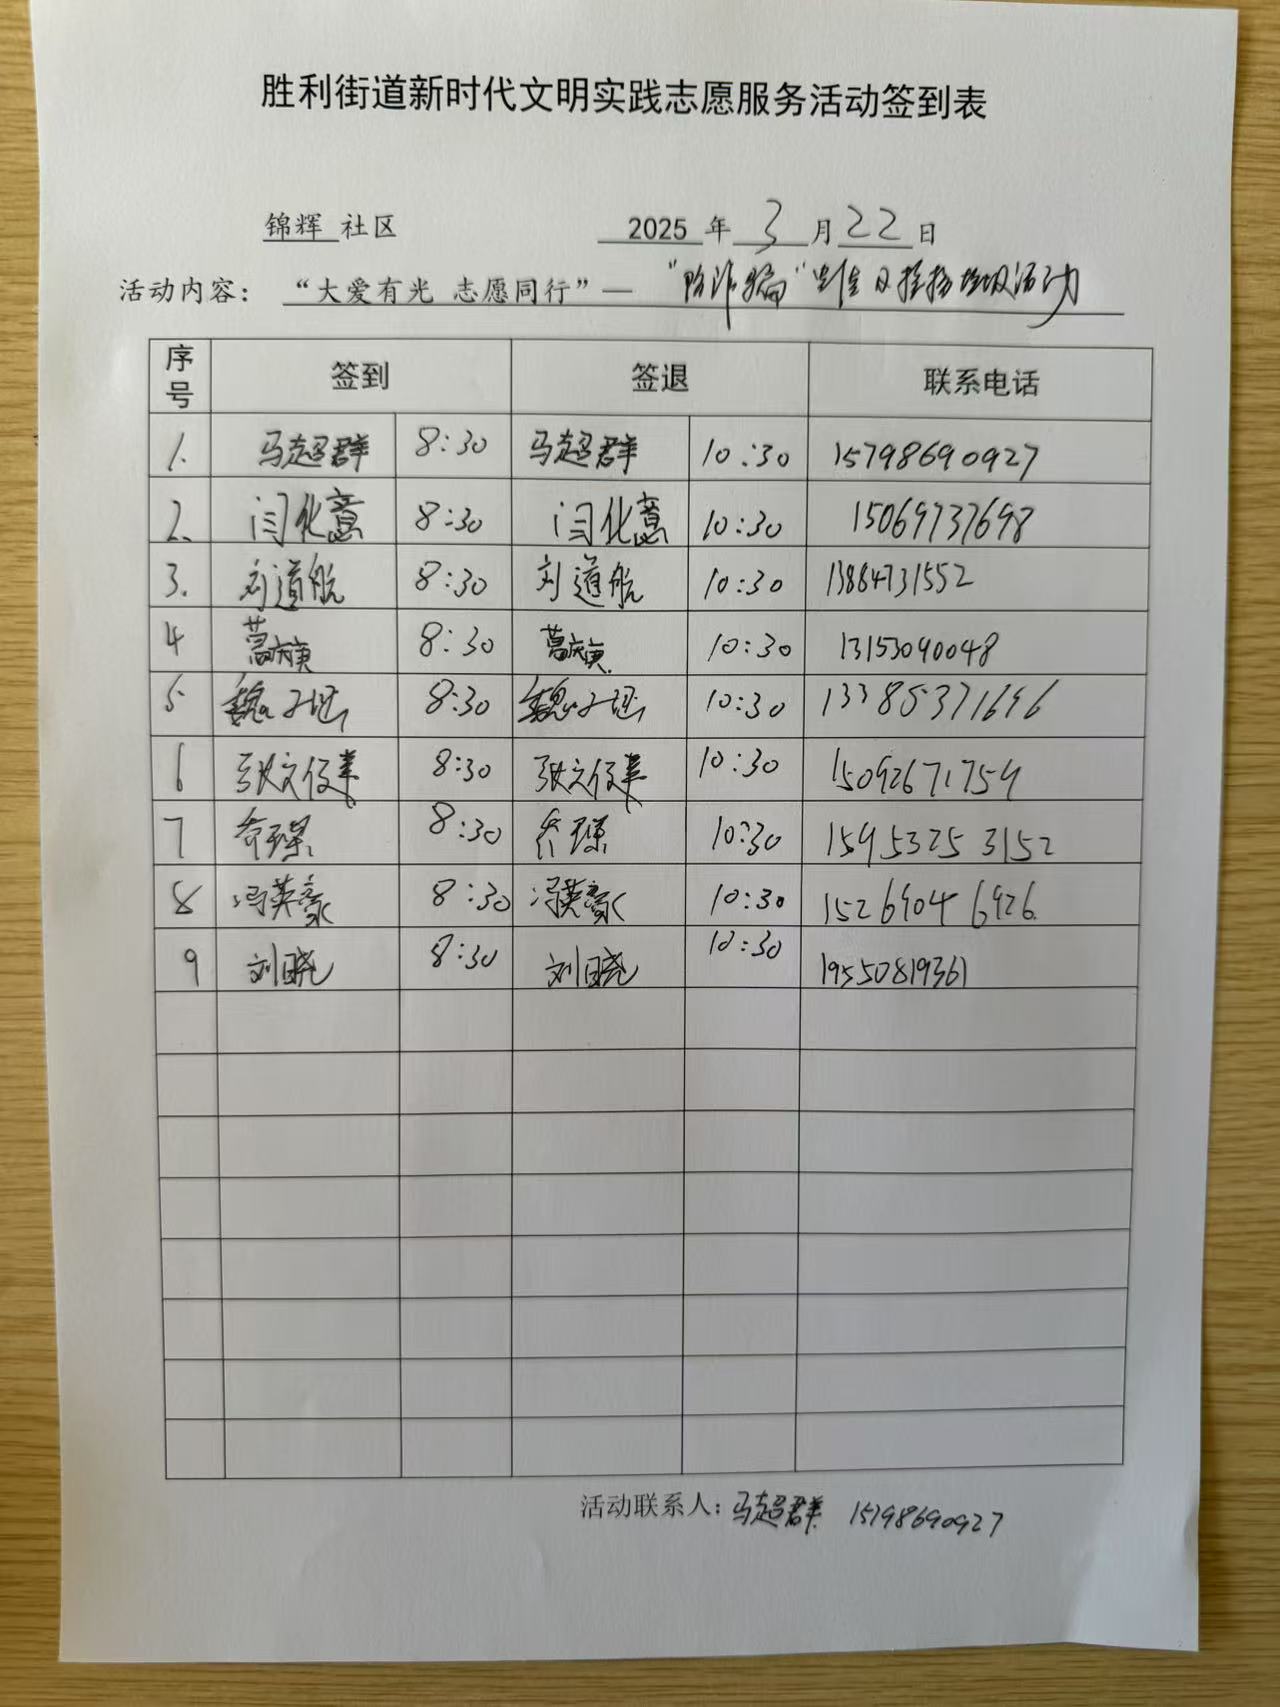 胜利街道新时代文明实践志愿服务活动签到表
锦辉 社区 2025 年 3 月 22 日
活动内容: “大爱有光 志愿同行”— “防诈骗” 及 垃圾活动
序号 签到 签退 联系电话
1. 马超群 8:30 马超群 10:30 15798690927
2. 闫化意 8:30 闫化意 10:30 15069737698
3. 刘道航 8:30 刘道航 10:30 13864731552
4 葛庆寅 8:30 葛庆寅 10:30 13153090048
5 魏 8:30 魏 10:30 13385371696
6 张文俊 8:30 张文俊 10:30 15092671759
7 乔璟 8:30 乔璟 10:30 15953253152
8 冯英豪 8:30 冯英豪 10:30 15269046926
9 刘晓 8:30 刘晓 10:30 19550819361
活动联系人: 马超群 15798690927